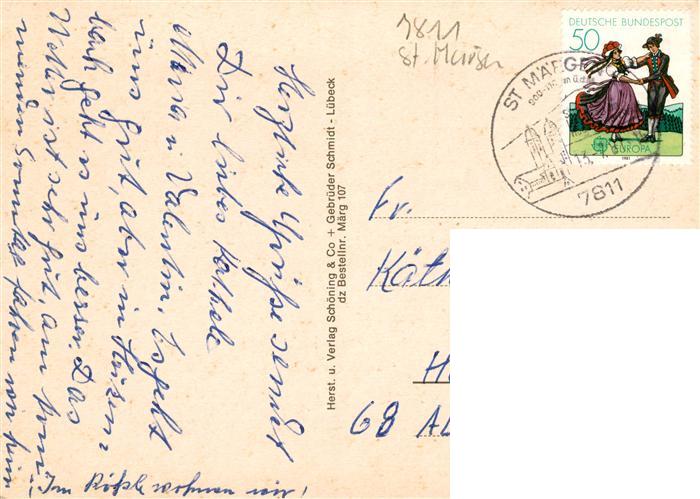 Herzliche Grüße sendet
Dir liebes Kathele
Maria u. Valentin. Es geht
uns gut, aber in Häusern
bach geht es uns besser. Das
Wetter ist sehr gut, am kom-
menden Sonntag fahren wir heim
Im Rößle wohnen wir!
Herst. u. Verlag Schöning & Co + Gebrüder Schmidt - Lübeck
dz Bestellnr. Märg 107
7811
St. Märgen
DEUTSCHE BUNDESPOST
50
EUROPA
1981
ST MÄRGE
7811
Fr.
Käth
H
68